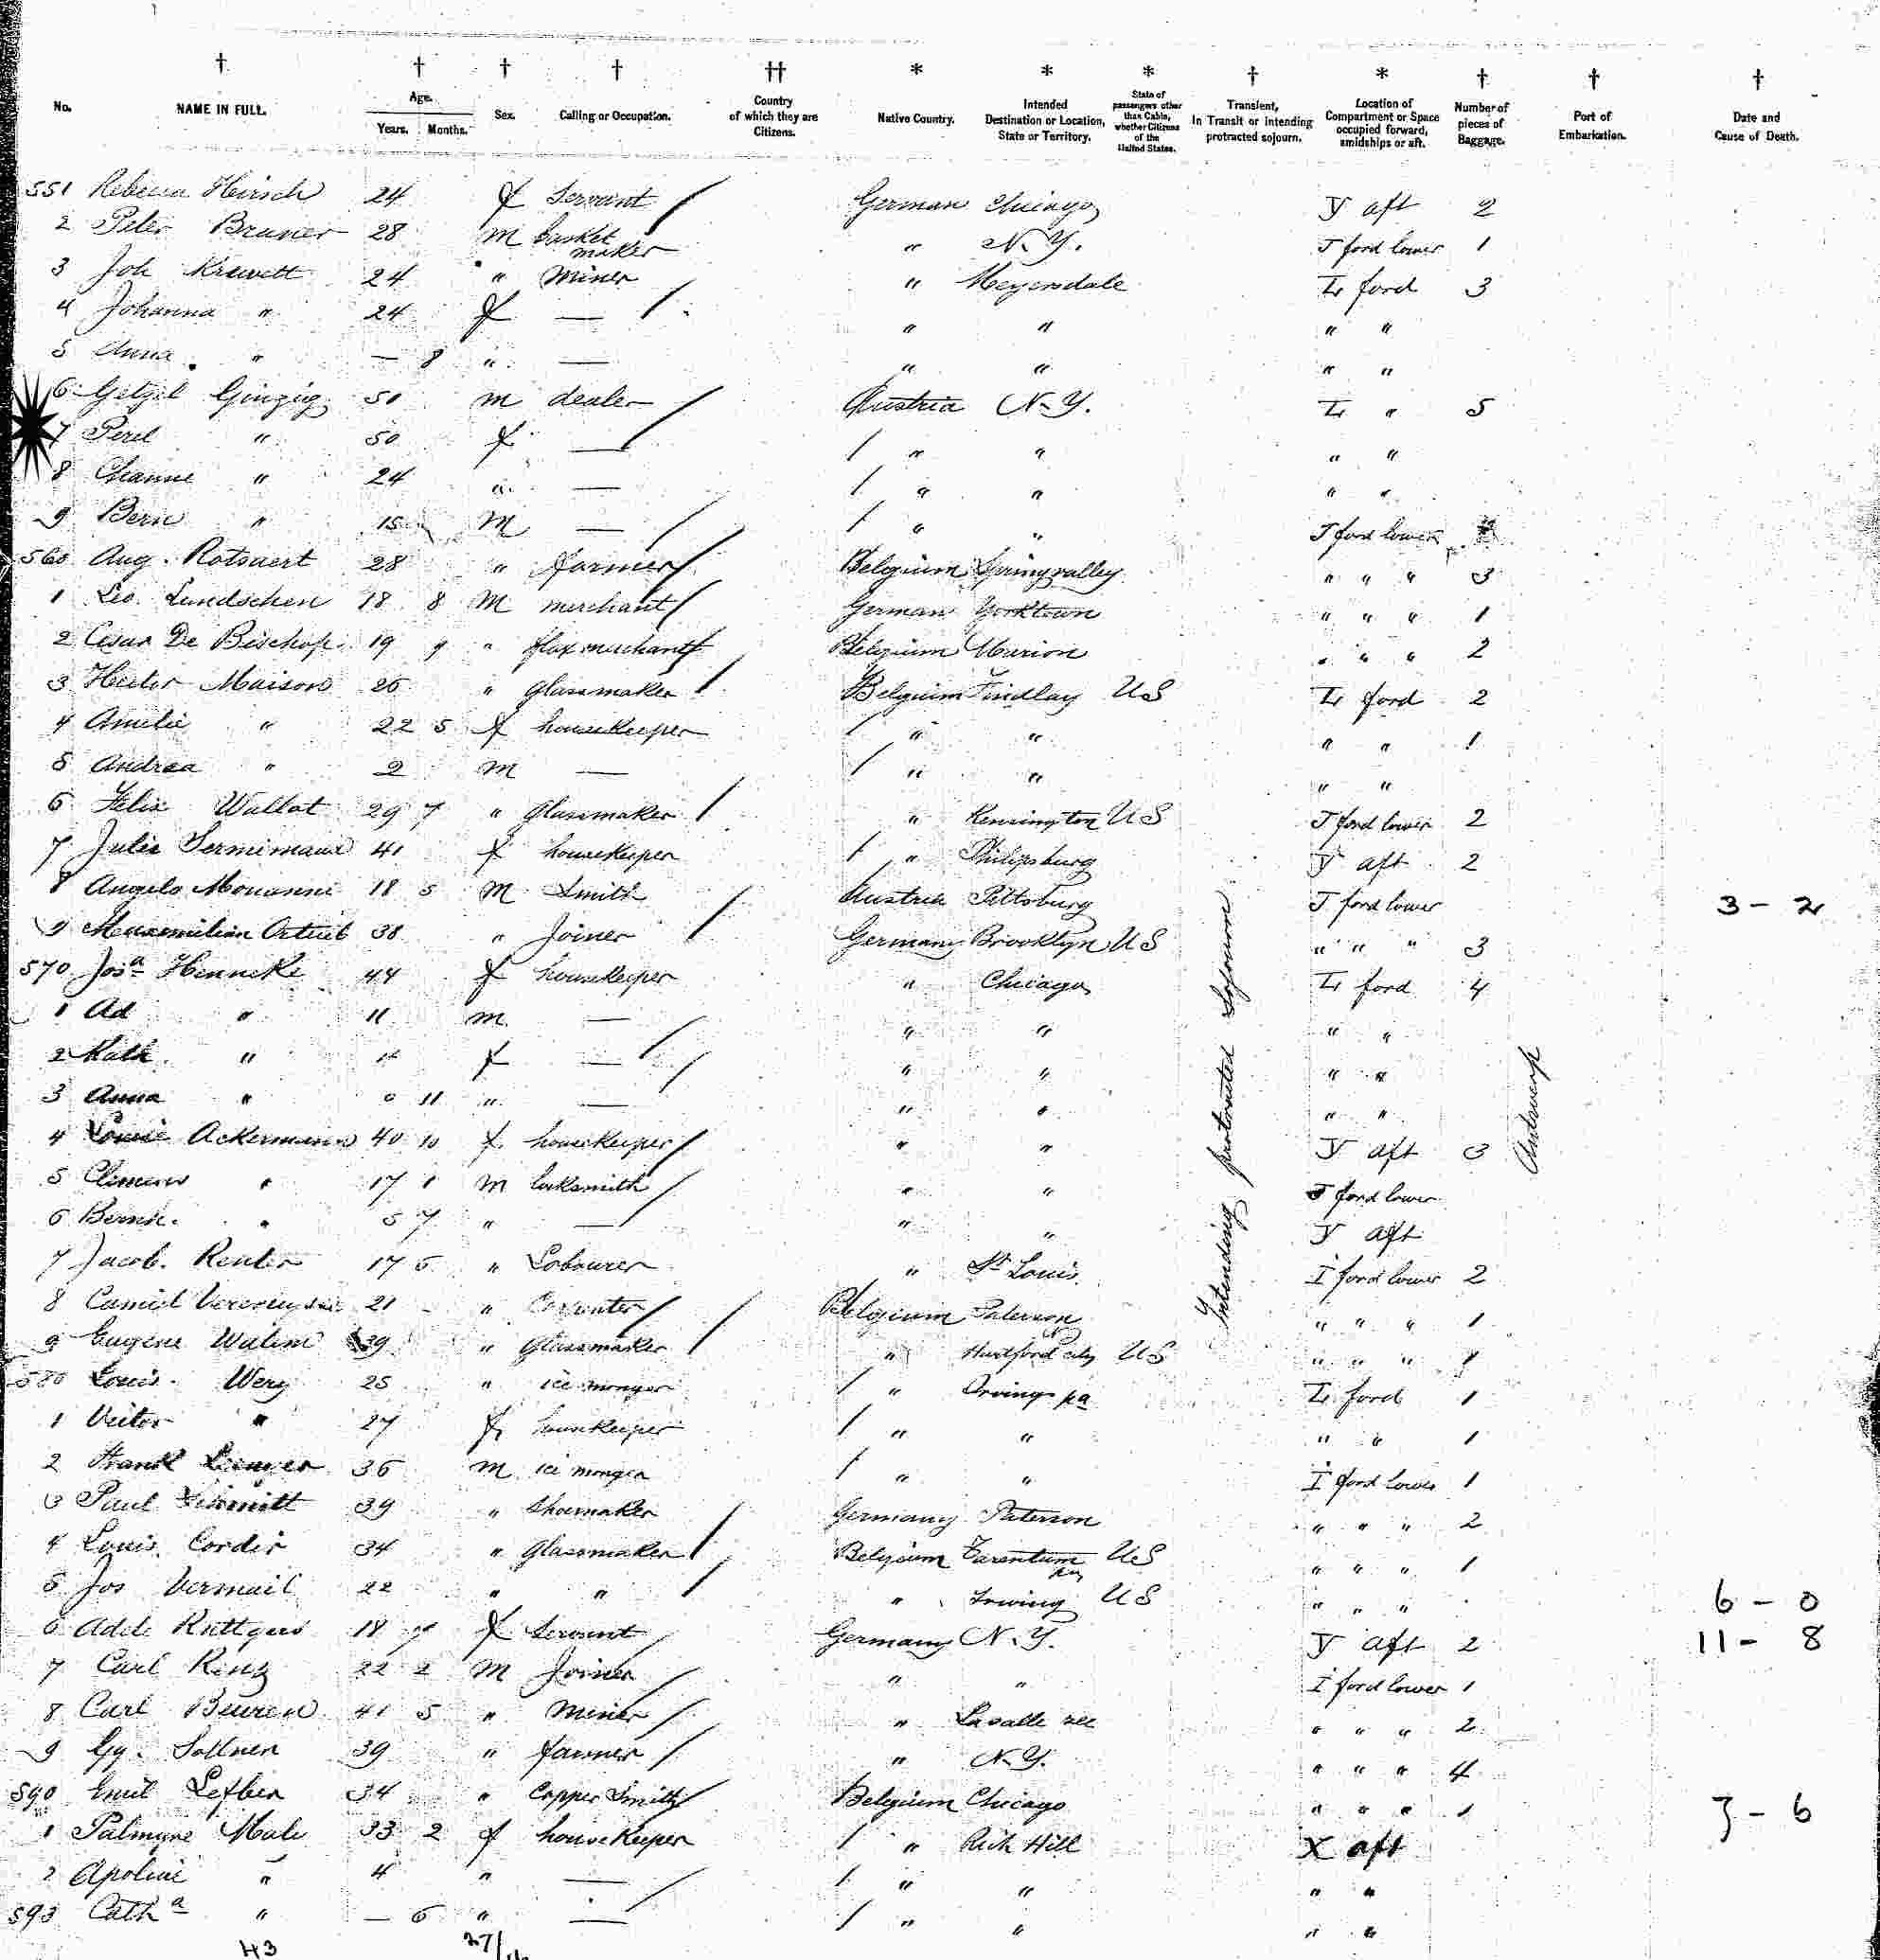 No. NAME IN FULL. Age. Years. Months. Sex. Calling or Occupation. Country of which they are Citizens. Native Country. Intended Destination or Location, State or Territory. State of passengers other than Cabin, whether Citizens of the United States. Transient, In Transit or intending protracted sojourn. Location of Compartment or Space occupied forward, amidships or aft. Number of pieces of Baggage. Port of Embarkation. Date and Cause of Death.
551 Rebecca Hirsch 24 f Servant German Chicago Y aft 2
2 Peter Braner 28 M basket maker " N.Y. J ford lower 1
3 Joh Krawett 24 " Miner " Meyersdale ford 3
4 Johanna " 24 f — " " " "
5 Anna " — 8 " — " " " "
6 Getzel Ginzig 50 m dealer Austria N.Y. " 5
7 Perel " 50 f — " " " "
8 Channe " 24 " — " " " "
9 " 15 M — " " J ford lower
560 Aug. Rotsaert 28 " farmer Belgium Springvalley " " " 3
1 Leo. Lundschen 18 8 M merchant German Yorktown " " " 1
2 Cesar De Bischop 19 9 " flax merchant Belgium Marion " " " 2
3 Hector Maison 26 " Glassmaker Belgium Findlay US ford 2
4 Amelie " 22 5 f housekeeper " " " " 1
5 Andrea " 2 m — " " " "
6 Felix Wallot 29 7 " Glassmaker " Kensington US J ford lower 2
7 Julie 41 f housekeeper " Philipsburg Y aft 2
8 Angelo Mouanni 18 5 M Smith Austria Pittsburg J ford lower 3 - 2
9 Maxemilian 38 " Joiner Germany Brooklyn US " " " 3
570 Josa Henneke 44 f housekeeper " Chicago ford 4
1 Ad " 11 m — " " " "
2 Kath. " f — " " " "
3 Anna " 0 11 " — " " " "
4 Louise Ackermann 40 10 f. housekeeper " " Y aft 3
5 Clemens " 17 1 M locksmith " " J ford lower
6 Bernh. " 5 7 " — " " Y aft
7 Jacob. Renter 17 5 " Labourer " St Louis I ford lower 2
8 Camiel 21 " Carpenter Belgium Paterson " " " 1
9 Eugene Walim 39 " Glassmaker " Hartford city US " " " 1
580 Louis. Wery 25 " ice monger " Irving pa ford 1
1 Victor " 27 f housekeeper " " " " 1
2 Frank 36 M ice monger " " I ford lower 1
3 Paul Schmitt 39 " Shoemaker Germany Paterson " " " 2
4 Louis Cordir 34 " Glassmaker Belgium Tarentum pa US " " " 1
5 Jos Vermail 22 " " " Irwing US " " " 6 - 0
6 Adele Ruttgers 18 7 f Servant Germany N.Y. Y aft 2 11 - 8
7 Carl Rinz 22 2 M Joiner " " I ford lower 1
8 Carl Beuren 41 5 " Miner " Lasalle " " " 2
9 Gg. Sollner 39 " farmer " N.Y. " " " 4
590 Emil Lefber 34 " Copper Smith Belgium Chicago " " " 1 7 - 6
1 Palmyre Male 33 2 f housekeeper " Rich Hill X aft
2 Apoline " 4 " — " " " "
593 Catha " — 6 " — " " " "
Intending protracted Sojourn
Antwerp
43 27/16